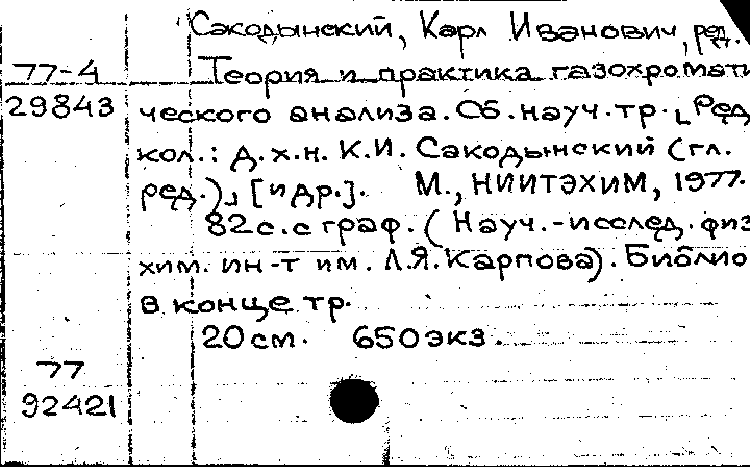 Сакодынский, Карл Иванович, ред.
77-4
Теория и практика газохромати
29843
ческого анализа. Сб. науч. тр. [Ред.
кол.: д.х.н. К.И. Сакодынский (гл.
ред.)], [и др.]. М., НИИТЭХИМ, 1977.
82с. с граф. (Науч.-исслед. физ
хим. ин-т им. Л.Я. Карпова). Библио
в конце тр.
20см. 650экз.
77
92421